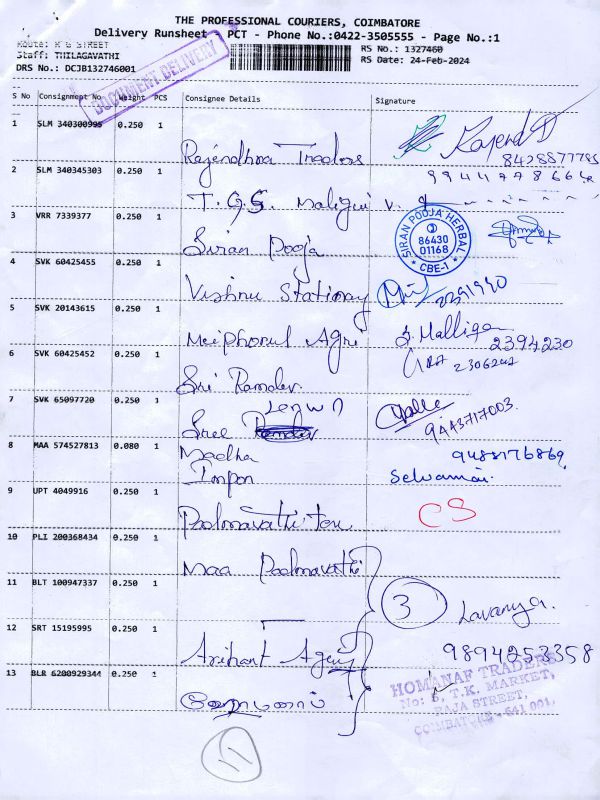 THE PROFESSIONAL COURIERS, COIMBATORE
Delivery Runsheet - PCT - Phone No.:0422-3505555 - Page No.:1
Route: R G STREET
Staff: THILAGAVATHI
DRS No.: DCJB132746001
RS No.: 1327460
RS Date: 24-Feb-2024
DOCUMENT DELIVERY
S No Consignment No Weight PCS Consignee Details Signature
1 SLM 340300995 0.250 1 Rajendhra Traders
8428877785
2 SLM 340345303 0.250 1 T.G.S.
3 VRR 7339377 0.250 1 Siran Pooja
SIRAN POOJA HERBAL
86430
01168
CBE-1
4 SVK 60425455 0.250 1 Vishnu Stationary
2391940
5 SVK 20143615 0.250 1 Meiphorul Agri
2394230
6 SVK 60425452 0.250 1 Sri Ramdev
7 SVK 65097720 0.250 1 Sree
9443717003
8 MAA 574527813 0.080 1 Madha
Inpon
Selvamani
9 UPT 4049916 0.250 1
CS
10 PLI 200368434 0.250 1 Maa Padmavathi
11 BLT 100947337 0.250 1
3 Lavanya.
12 SRT 15195995 0.250 1 Arihant Agency
9894253358
13 BLR 6200929344 0.250 1
HOMANAF TRADERS
No: 5, T.K. MARKET,
RAJA STREET,
COIMBATORE - 641 001.